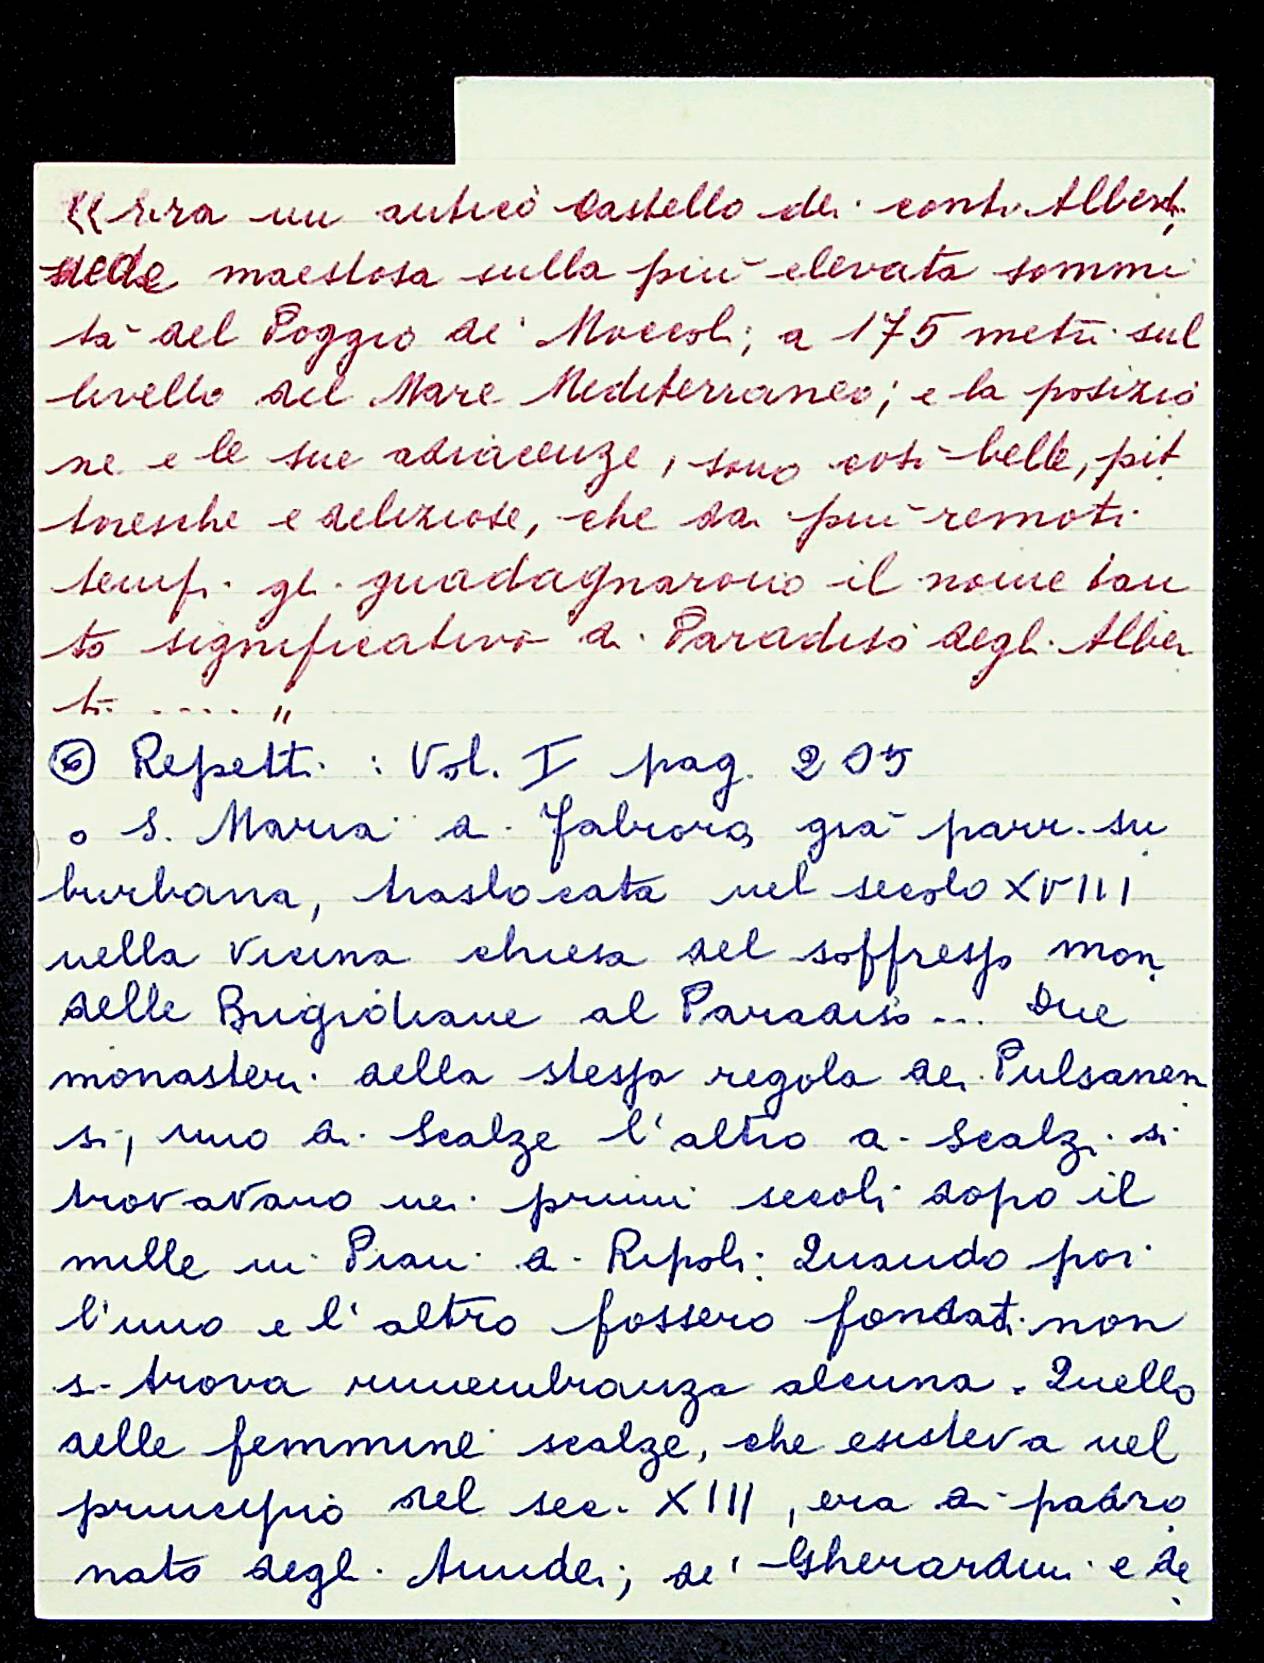 «Era un antico Castello dei conti Albert.
siede maestosa sulla più elevata sommi
tà del Poggio de' Moccoli; a 175 metri sul
livello del Mare Mediterraneo; e la posizio
ne e le sue adiacenze, sono così belle, pit
toresche e deliziose, che dai più remoti
tempi gli guadagnarono il nome tan
to significativo di Paradiso degli Alber
ti .... "
⑥ Repetti : Vol. I pag. 205
o S. Maria a Fabroro, già parr. su
burbana, traslocata nel secolo XVIII
nella vicina chiesa del soffresso mon.
delle Brigidiane al Paradiso ... Due
monasteri della stessa regola dei Pulsanen
si, uno di Scalze l'altro di Scalzi si
trovavano nei primi secoli dopo il
mille in Pian di Ripoli: Quando poi
l'uno e l'altro fossero fondati non
si trova rimembranza alcuna. Quello
delle femmine scalze, che esisteva nel
principio del sec. XIII, era di padro
nato degli Amidei; de' Gherardini e de